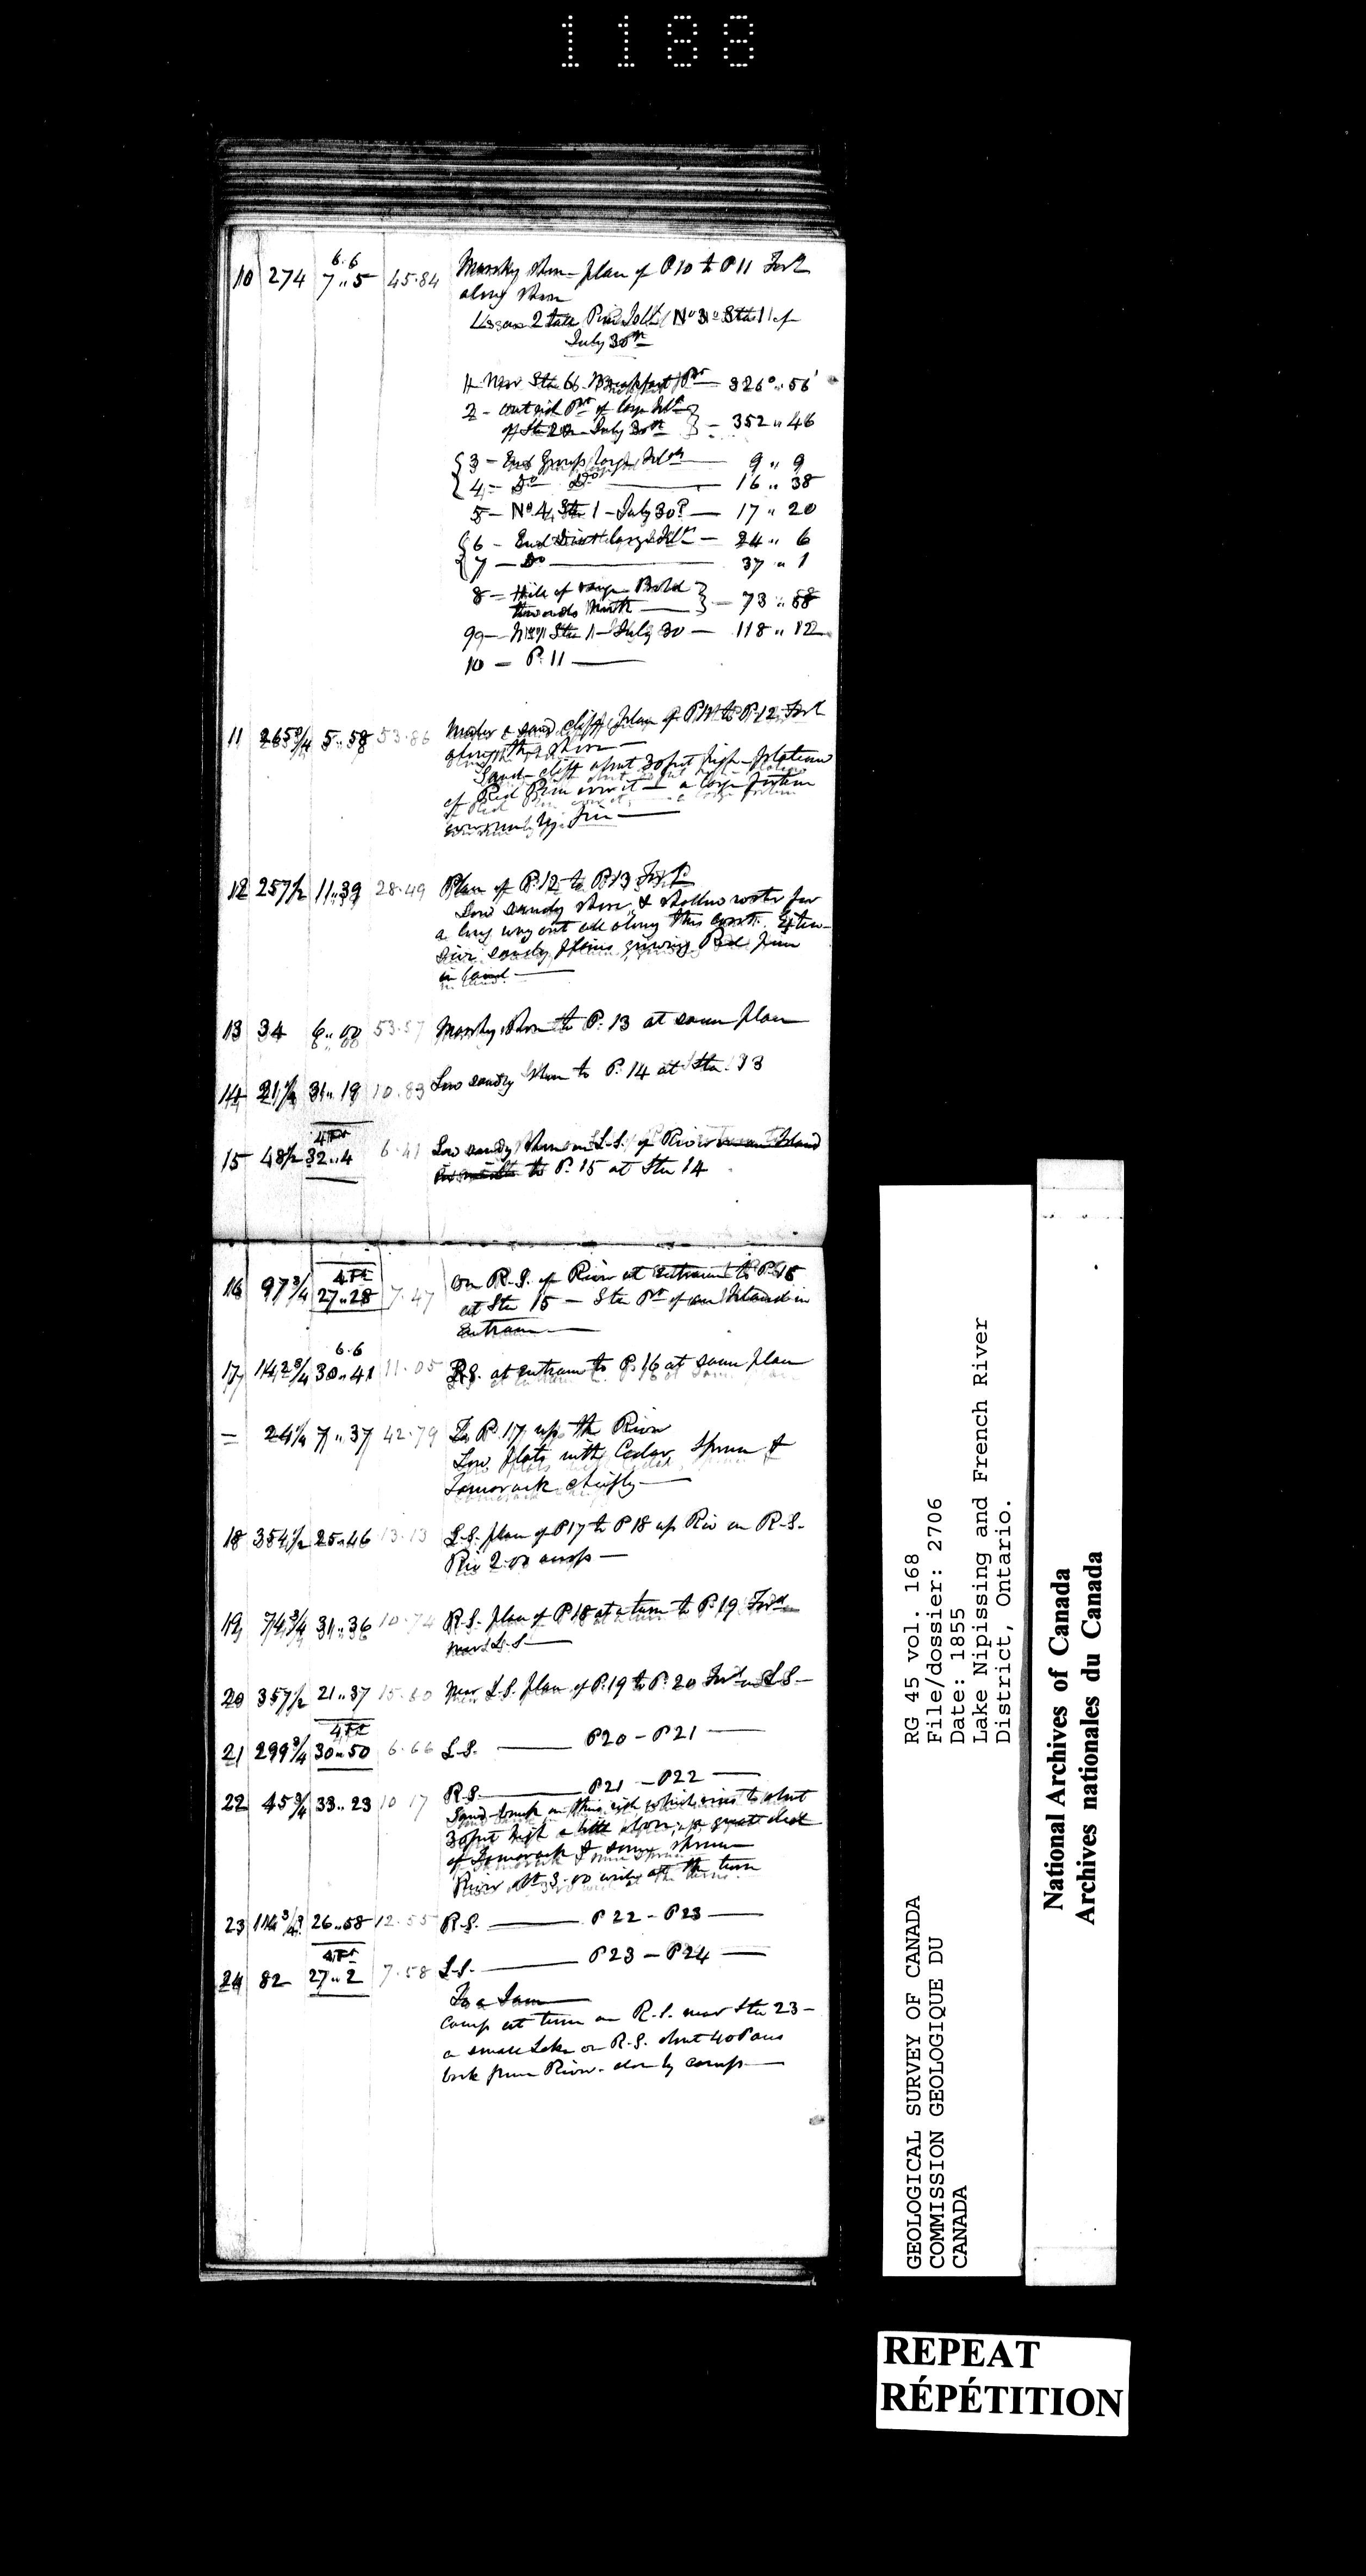 1188
6.6
10 274 7..5 45.84 Marshy shore - place of P10 to P11 Ford
along shore
July 30th
1 - Near Sta 66 Breakfast Pnt — 326°..56'
2 - outside Pnt of large Isld
of Sta 20 - July 30th } — 352..46
3 - End Group large Islds — 9..9
4 - Do Do — 16..38
5 - No 4, Sta 1 - July 30th — 17..20
6 - End distt large Isld — 24..6
7 - Do — 37..1
8 - Hill of range Bold
towards North } — 73..58
9 - Sta 1 - July 30 — 118..12
10 - P. 11 —
11 265 3/4 5..58 53.86 Under a sand cliff place of P11 to P.12 Ford
along the shore —
Sand-cliff about 30 feet high - plateau
of Red Pine over it — a large portion
overrun by fire —
12 257 1/2 11..39 28.49 Place of P.12 to P.13 Ford
Low sandy shore & shallow water for
a long way out all along this coast. Exten-
sive sandy plains, growing Red pine
in land. —
13 34 6..00 53.57 Marshy shore to P. 13 at same place
14 21 1/2 31..19 10.83 Low sandy shore to P. 14 at Sta. 13
4 Ft
15 48 1/2 32..4 6.41 Low sandy shore on L.S. of River
to P. 15 at Sta 14
4 Ft
16 97 3/4 27..28 7.47 On R.S. of River at entrance to P. 15
at Sta 15 — Sta Pnt of an Island in
Entrance —
6.6
17 142 3/4 30..41 11.05 R.S. at entrance to P. 16 at same place
= 24 1/4 7..37 42.79 To P. 17, up the River
Low flats with Cedar, Spruce &
Tamarack chiefly —
18 354 1/2 25..46 13.13 L.S. place of P17 to P18 up Riv on R.S.
Riv 2.00 across —
19 74 3/4 31..36 10.74 R.S. place of P18 at a turn to P. 19 Ford
near L.S —
20 357 1/2 21..37 15.60 Near L.S. place of P.19 to P. 20 Ford on L.S —
4 Ft
21 299 3/4 30..50 6.66 L.S. — P20 - P21 —
22 45 3/4 33..23 10.17 R.S. — P21 - P22 —
Sand-bank on this side which rises to about
30 feet high a little above, a great deal
of Tamarack & some spruce
River abt 3.00 wide at the turn
23 114 3/4 26..58 12.55 R.S. — P22 - P23 —
4 Ft
24 82 27..2 7.58 L.S. — P23 - P24 —
To a
Camp at turn on R.S. near Sta 23 -
a small Lake on R.S. about 40 Paces
back from River - close by camp —
GEOLOGICAL SURVEY OF CANADA
COMMISSION GEOLOGIQUE DU
CANADA
RG 45 vol. 168
File/dossier: 2706
Date: 1855
Lake Nipissing and French River
District, Ontario.
National Archives of Canada
Archives nationales du Canada
REPEAT
RÉPÉTITION